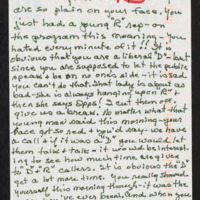 are so plain on your face. You
just had a young "R" rep- on
the program this meaning - You
hated every minute of it!! It is
obvious that you are a liberal "D"- but
since you are supposed to let the public
speak & be on no ones side - it is sad
you can't do that. That lady is about as
bad - she is always hanging upon "R"
then she says Opps! I cut them off.
give us a break. No matter what that
young man said this morning - your
face got so red + you'd say - we have
a call; if it was a "D" you would let
them talk + talk - it would be interest-
ing to see how much time they give
to "D" + "R" callers. It is obvious the "D"
get a lot more time. You really showed
yourself this morning though - it was the
I've ever been, and when you